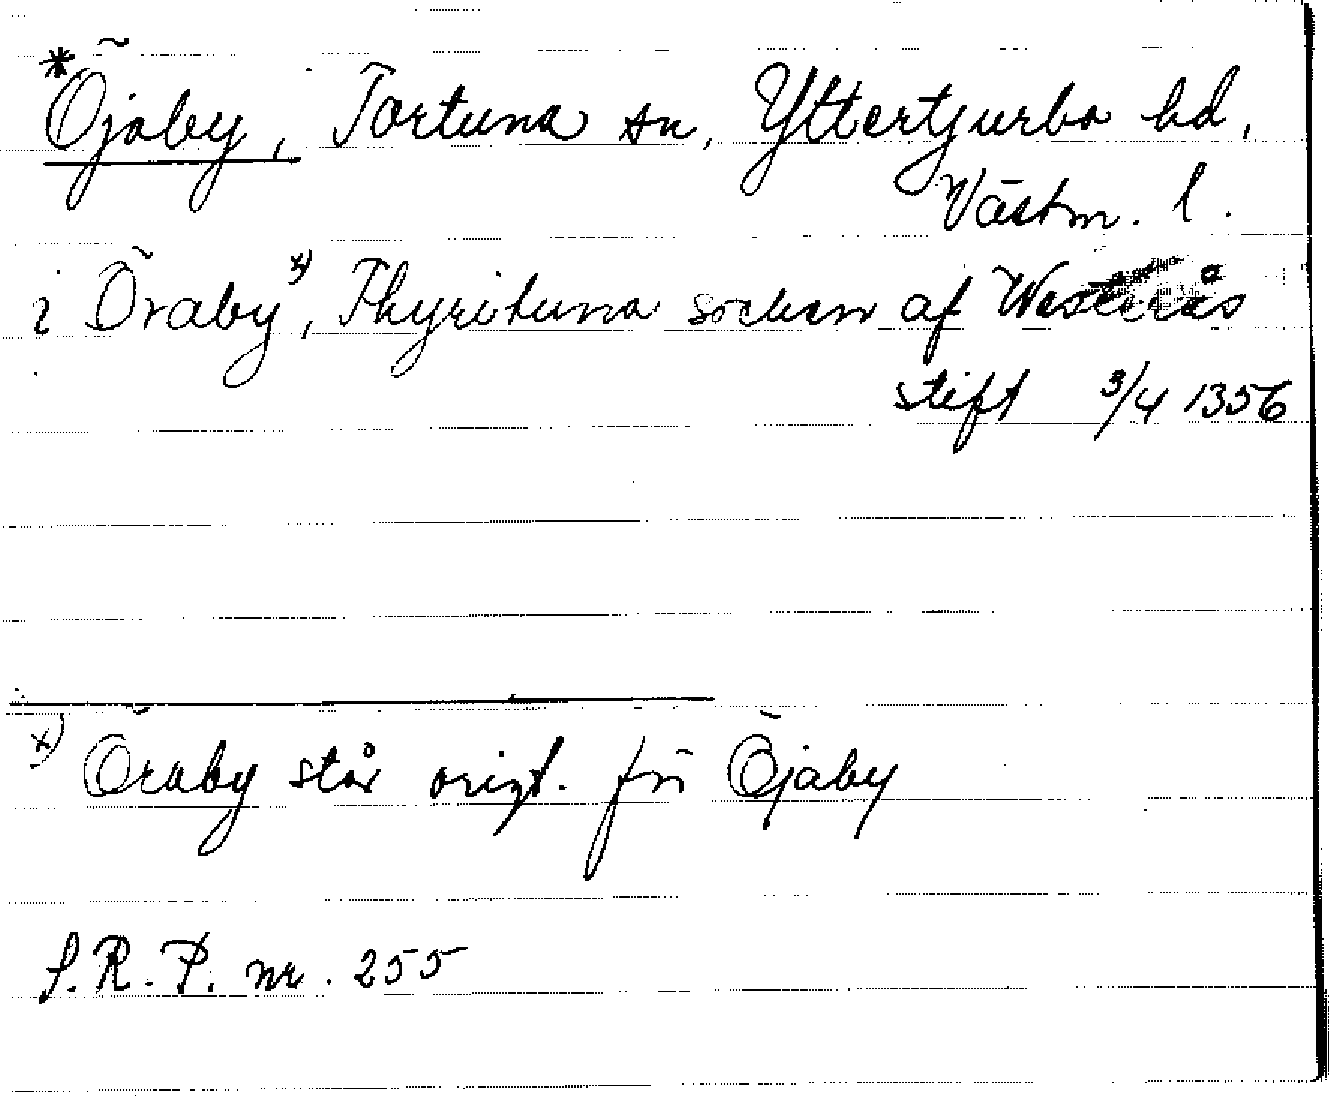 *Öjaby, Tortuna sn, Yttertjurbo hd,
Västm. l.
i Öraby x), Thyrituna socken af Westerås
stift 3/4 1356
x) Öraby står origt. för Öjaby
S.R.P. nr. 255